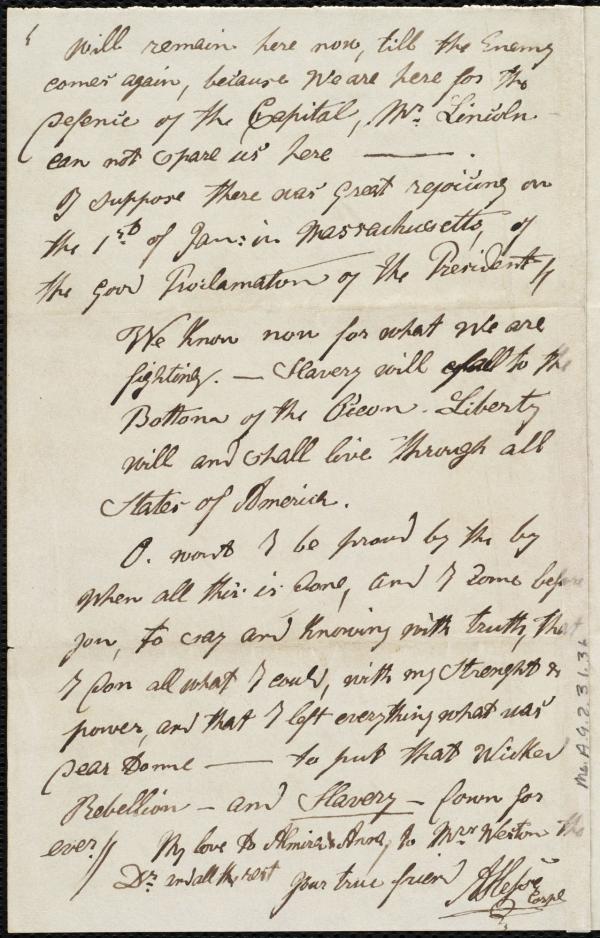 will remain here now, till the Enemy
comes again, because We are here for the
Defence of the Capital, Mr. Lincoln
can not spare us here — .
I suppose there was great rejoicing on
the 1st of Jan: in Massachusetts, of
the good Proclamation of the President //
We Know now for what We are
fighting. — Slavery will fall to the
Bottom of the Ocean. Liberty
will and shall live through all
States of America.
O. wont I be proud by the by
when all this is done, and I come before
you, to say and Knowing with truth, that
I don all what I could, with my Strenght &
power, and that I left everything what was
Dear to me — to put that Wicked
Rebellion – and Slavery – down for
ever. // My love to Almira & Anna, to Mrs Weston the
Dr. and all the rest your true friend
Corpl
Ms. A.9.2.31.36